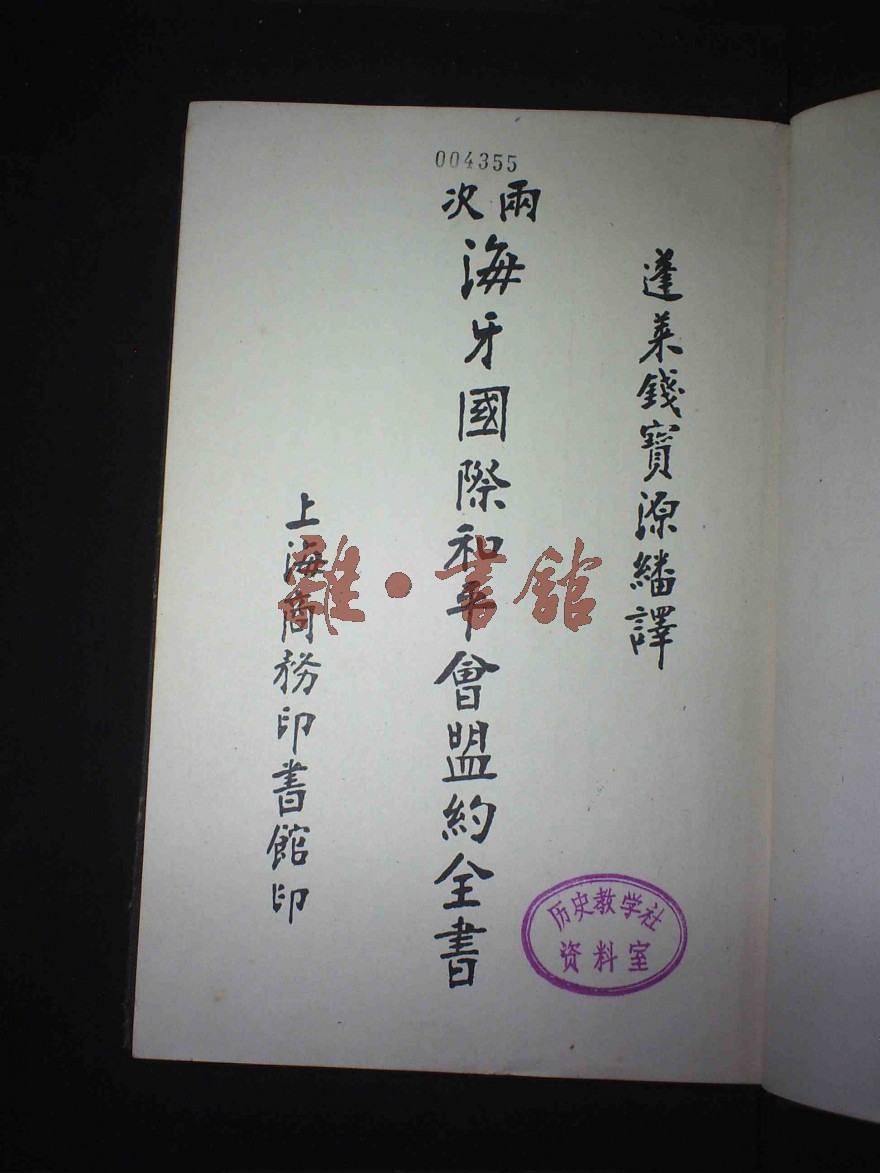 004355
蓬萊錢寶源繙譯
兩次海牙國際和平會盟約全書
上海商務印書館印
雜·書館
历史教学社
资料室